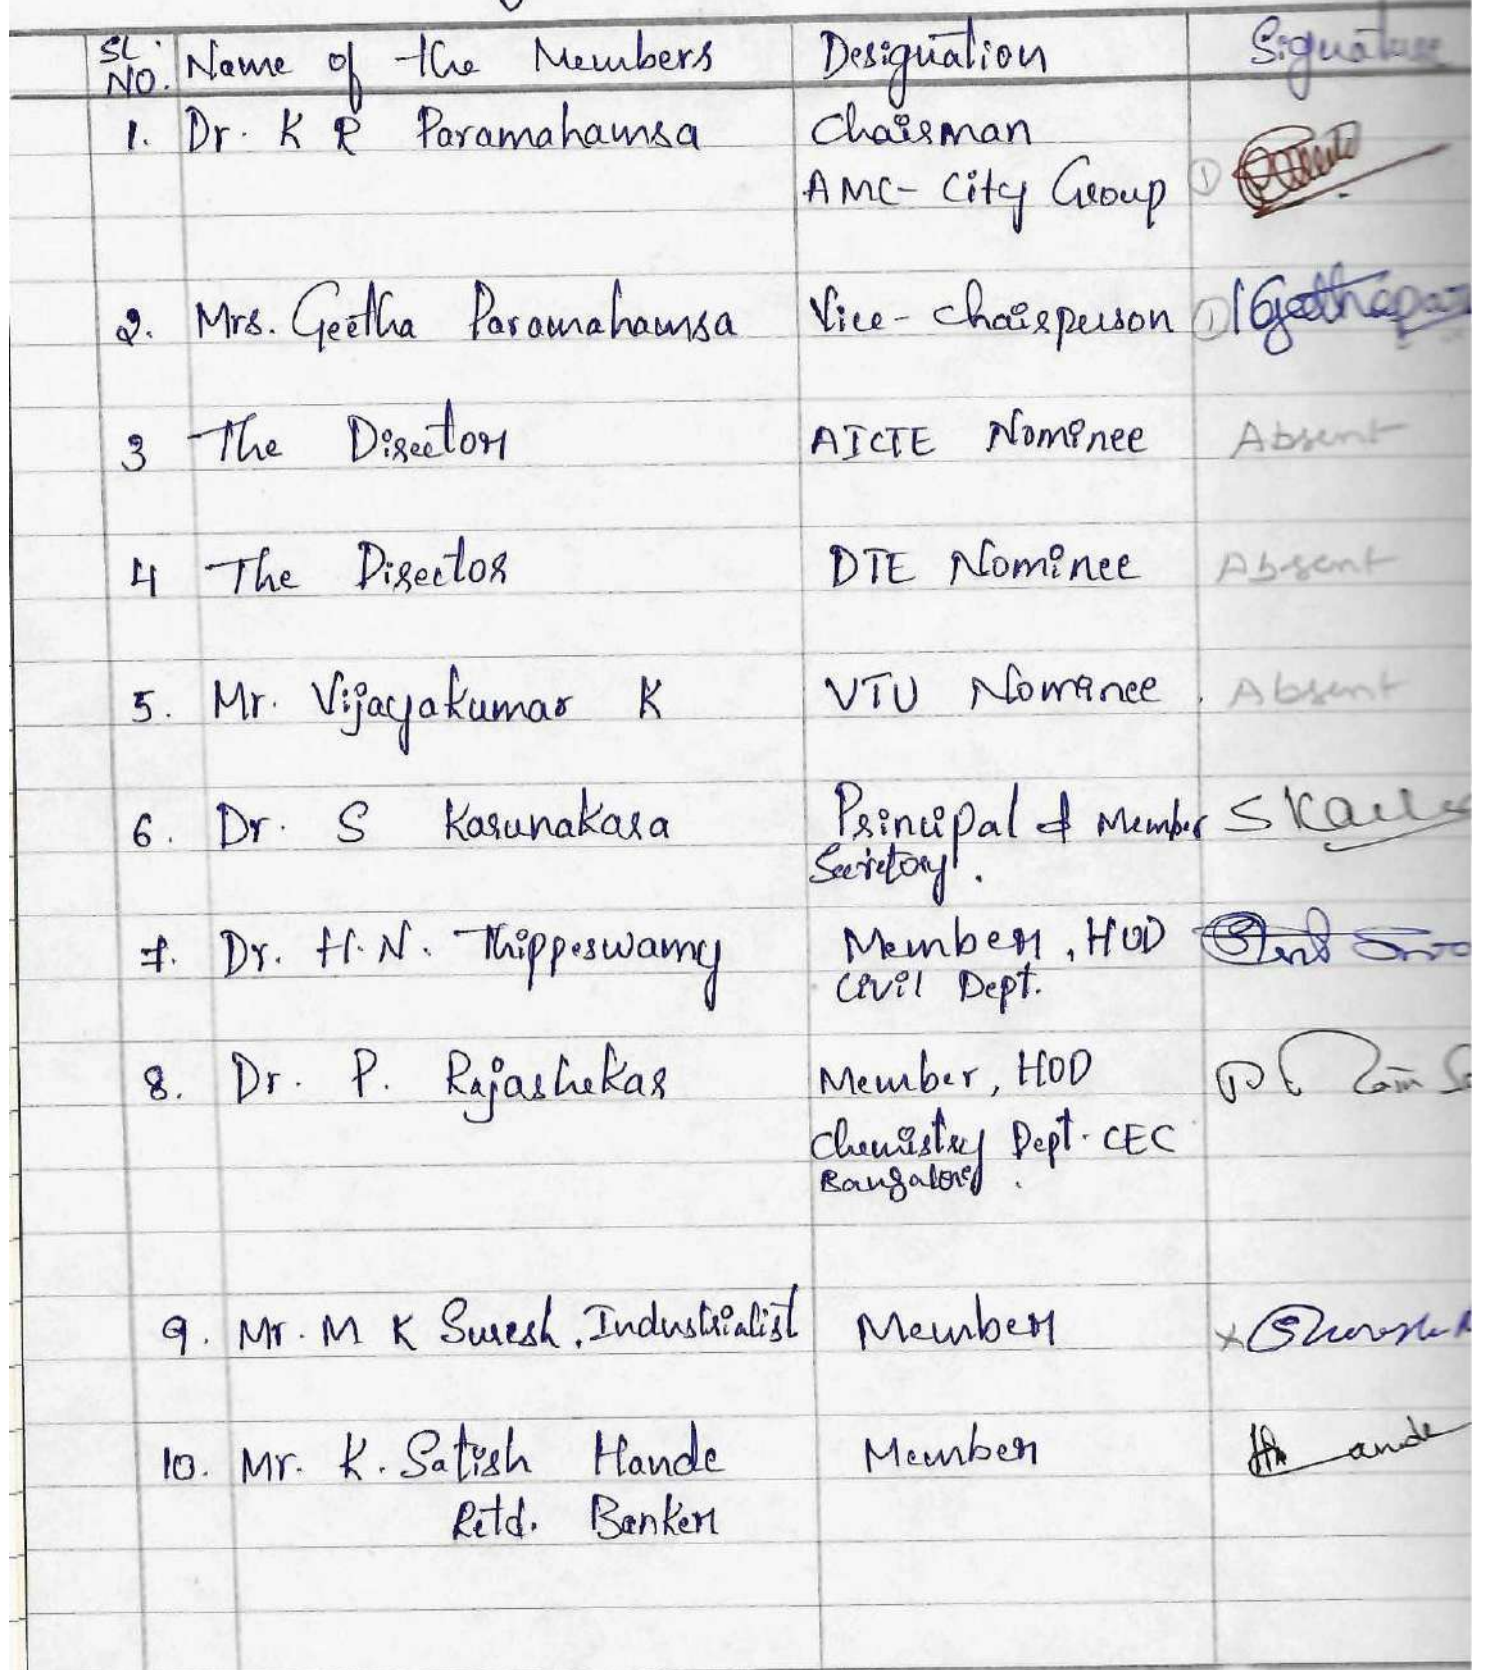 SL. NO. Name of the Members Designation Signature
1. Dr. K R Paramahamsa Chairman
AMC- City Group
2. Mrs. Geetha Paramahamsa Vice-Chairperson
3 The Director AICTE Nominee Absent
4 The Director DTE Nominee Absent
5. Mr. Vijayakumar K VTU Nominee. Absent
6. Dr. S Karunakara Principal & Member
Secretory.
7. Dr. H.N. Thippeswamy Member, HOD
Civil Dept.
8. Dr. P. Rajashekar Member, HOD
Chemistry Dept. CEC
Bangalore.
9. Mr. M K Suresh, Industrialist Member
10. Mr. K. Satish Hande Member
Retd. Banker